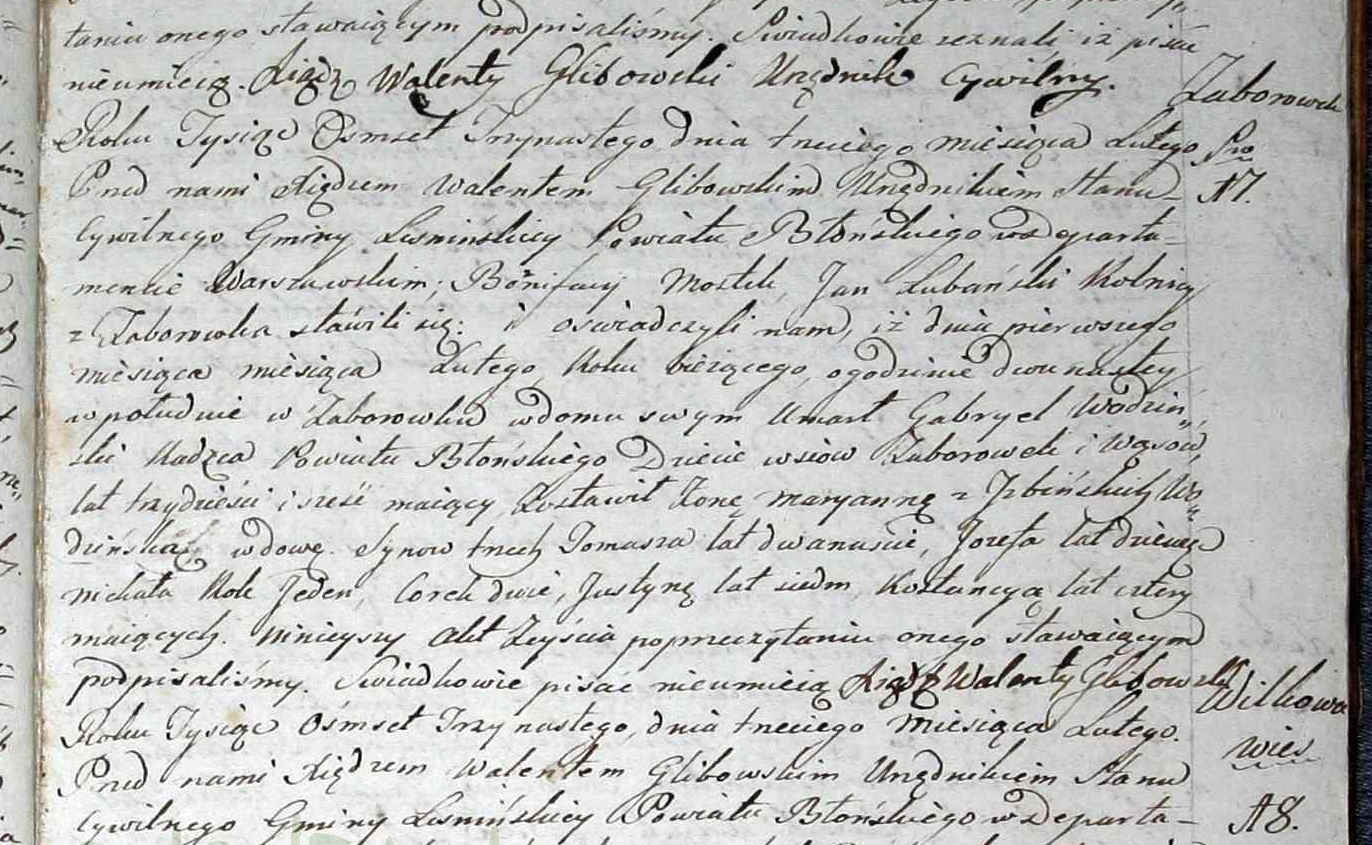 taniu onego stawaiącym podpisaliśmy. Swiadkowie zeznali iż pisać
nieumieią. Xiądz Walenty Glibowski Urzędnik Cywilny.
Zaborowek
Roku Tysiąc Osmset Trzynastego dnia trzeciego miesiąca Lutego
Przed nami Xiędzem Walentem Glibowskim Urzędnikiem Stanu
A7.
Cywilnego Gminy Lesminskiey Powiatu Błońskiego w Departa-
mencie Warszawskim; Bonifacy Mostek, Jan Lubański Rolnicy
z Zaborowka stawili się: i oswiadczyli nam, iż dnia pierwszego
miesiąca miesiąca Lutego, Roku bieżącego, ogodzinie dwunastey
wpołudnie w Zaborowku wdomu swym Umarł Gabryel Wodziń„
ski Radzca Powiatu Błońskiego Dziedzic wsiow Zaborowek i Wąsow,
lat trzydzieści i sześć maiący, Zostawił Zonę Maryannę z Jzbińskich Wo„
dzińską wdowę. Synow trzech Tomasza lat dwanaście, Jozefa lat dziewięć
Michała Rok Jeden, Corek dwie, Justynę lat siedm, Kostancyą lat cztery
maiących. Ninieyszy Akt Zeyścia poprzeczytaniu onego stawaiącym
podpisaliśmy. Swiadkowie pisać nieumieią Xiądz Walenty Glibowski
Wilkowa
Roku Tysiąc Ośmset Trzynastego, dnia trzeciego Miesiąca Lutego.
wies
Przed nami Xiędzem Walentem Glibowskim Urzędnikiem Stanu
Cywilnego Gminy Lesmińskiey Powiatu Błońskiego w Departa-
A8.